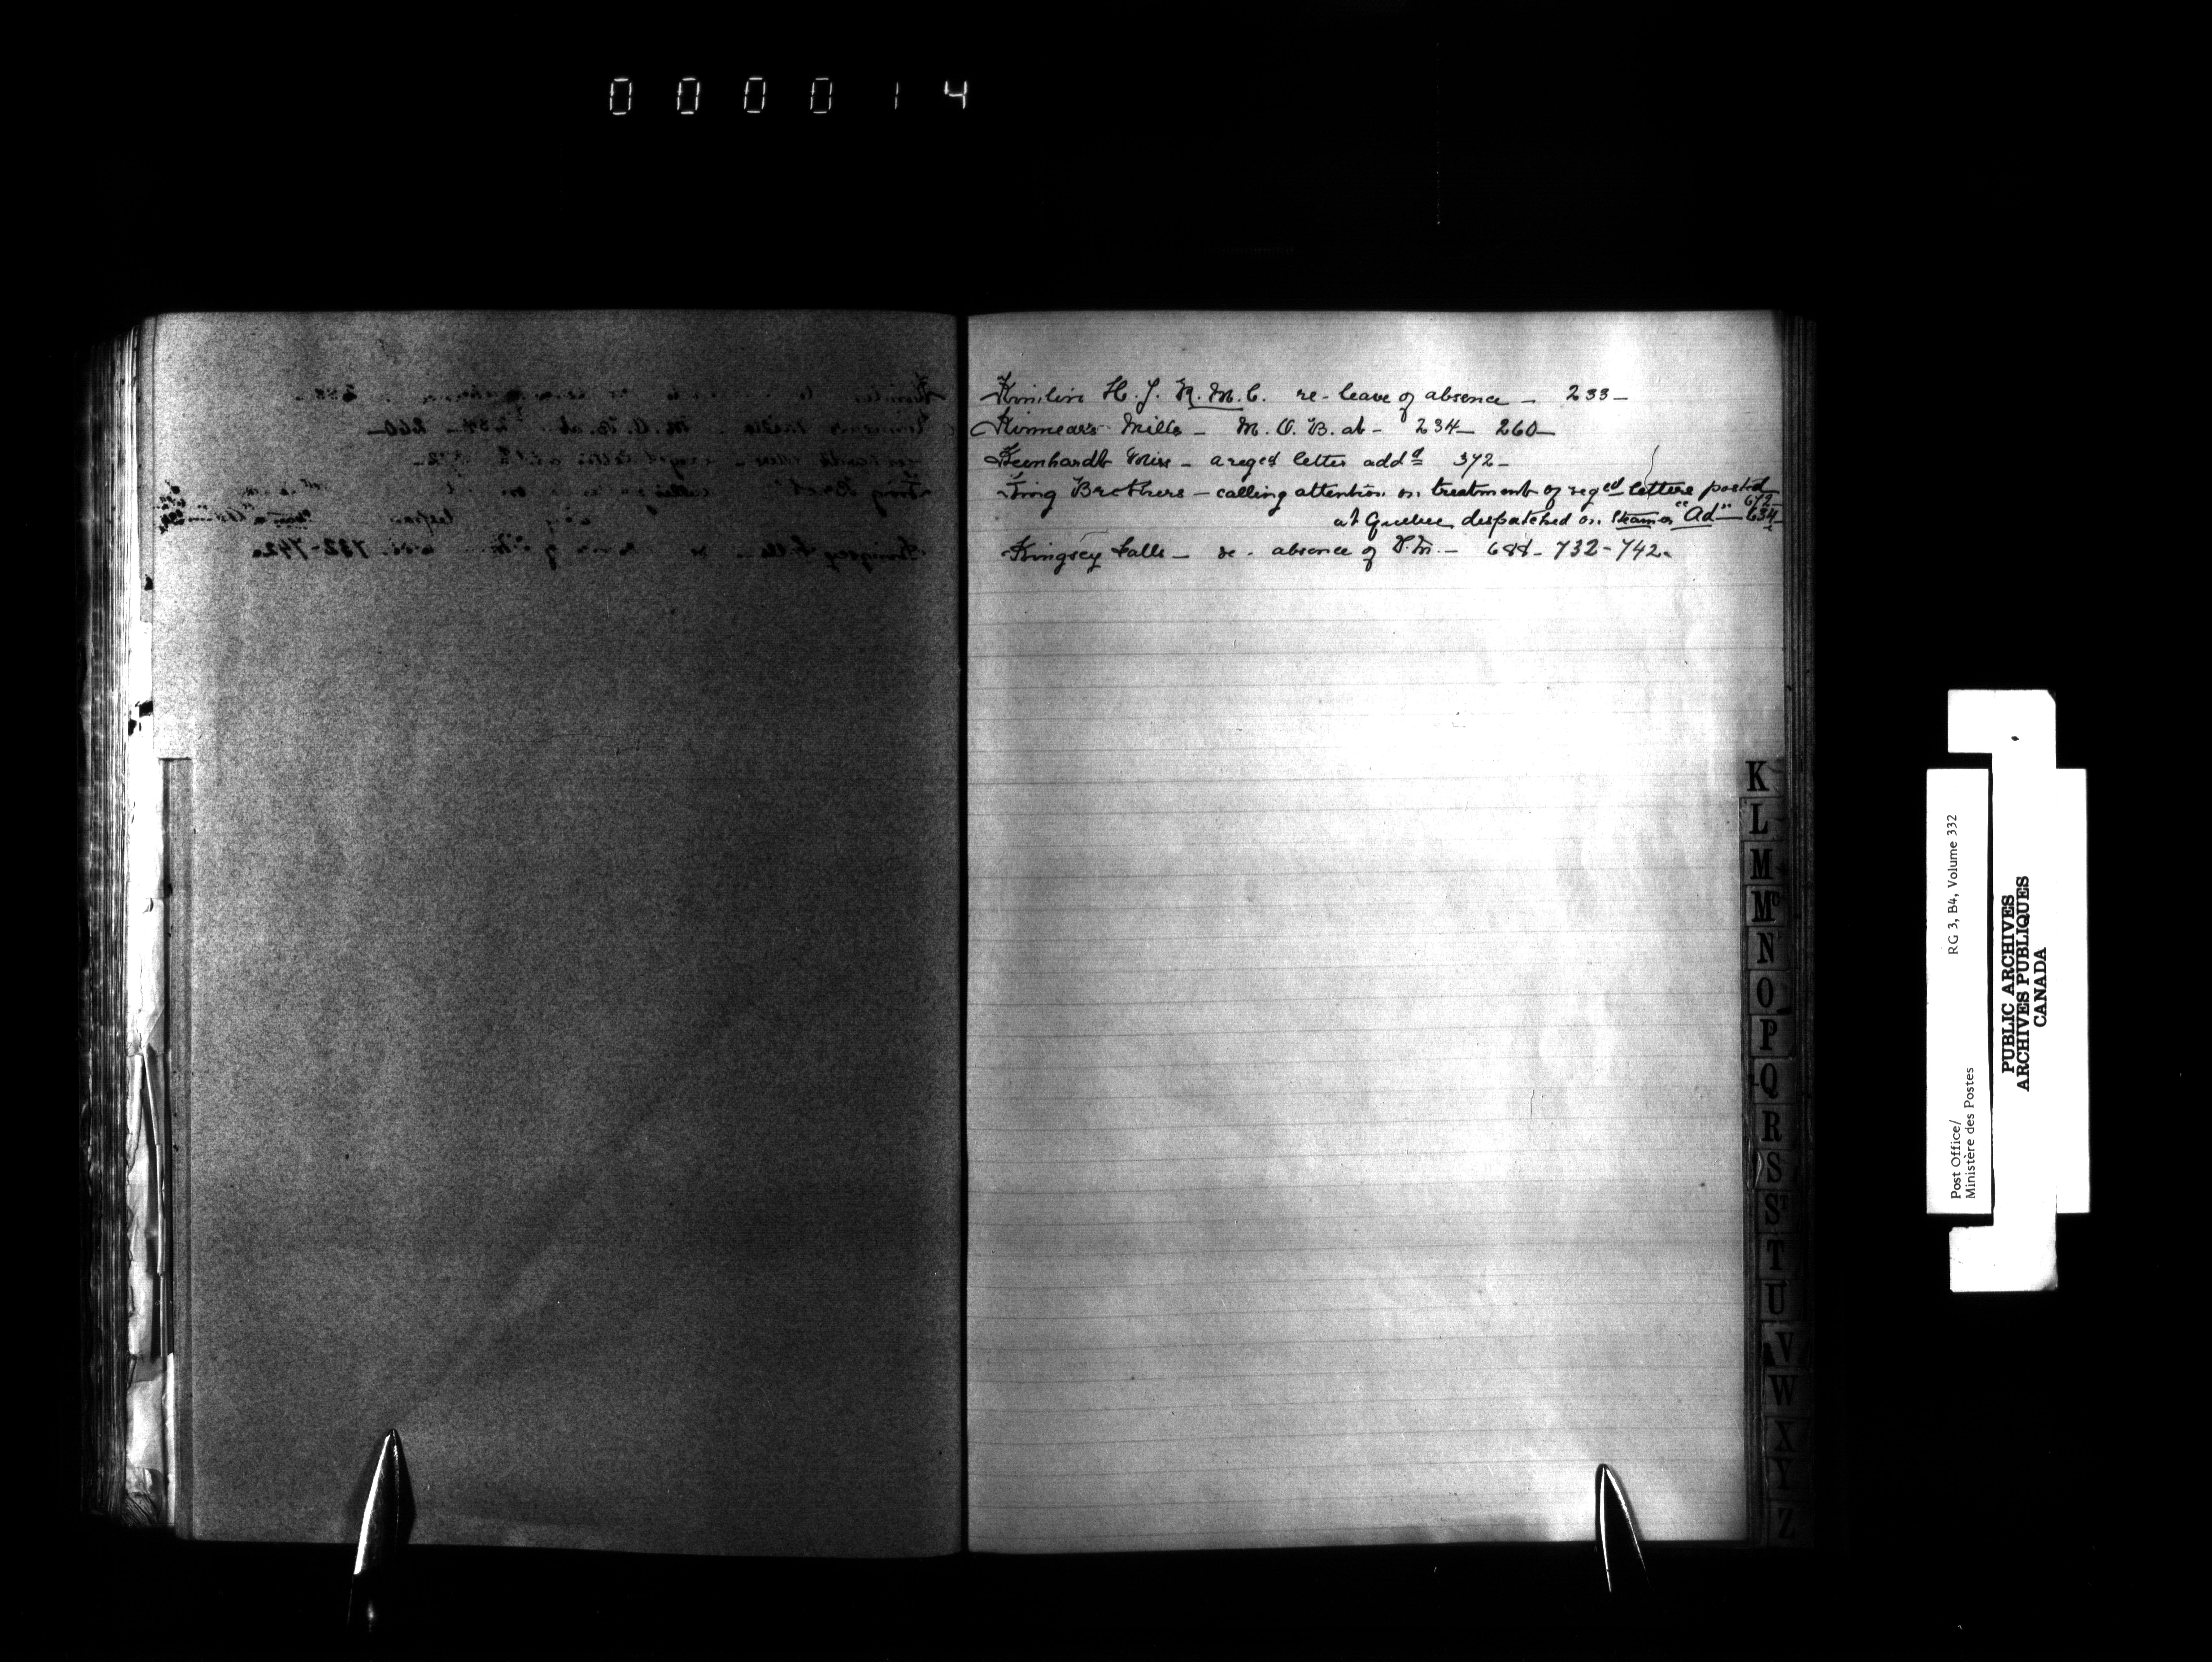 000014
Kimlin H. J. R. M. C. re-leave of absence - 233-
Kinnear's Mills - M. O. B. at - 234- 260-
Keenhardt Miss - a reged letter addd 372-
King Brothers - calling attention on treatment of reged letters posted 672
at Quebec dispatched on Steamer "Ad" - 634-
Kingsey Falls - re - absence of P.M. - 688- 732-742-
K
L
M
Mc
N
O
P
Q
R
S
ST
T
U
V
W
X
Y
Z
Post Office/ RG 3, B4, Volume 332
Ministère des Postes
PUBLIC ARCHIVES
ARCHIVES PUBLIQUES
CANADA